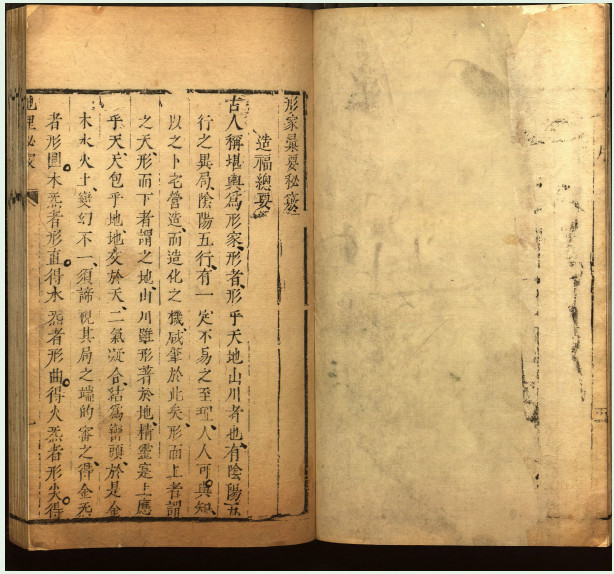 形家彙要秘竅
造福總要
古人稱堪輿爲形家、形者、形乎天地山川者也、有陰陽五
行之異局、陰陽五行、有一定不易之至理、人人可與知、
以之卜宅營造、而造化之機、咸肇於此矣、形而上者謂
之天、形而下者謂之地、山川雖形著於地、精靈寔上應
乎天、天包乎地、地交於天、二氣凝合、結爲巒頭、於是金
木水火土、變幻不一、須諦視其局之端的審之得金炁
者形圓。木炁者形直。得水炁者形曲。得火炁者形尖。得
地理秘